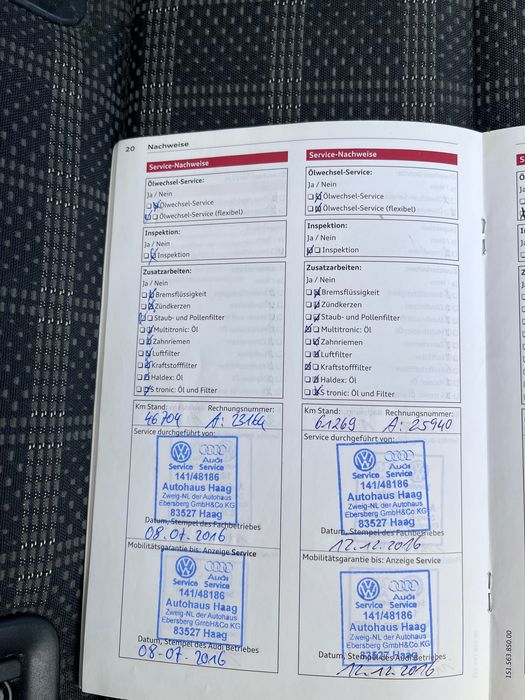 20 Nachweise
Service-Nachweise
Ölwechsel-Service:
Ja / Nein
Ölwechsel-Service
Ölwechsel-Service (flexibel)
Inspektion:
Ja / Nein
Inspektion
Zusatzarbeiten:
Ja / Nein
Bremsflüssigkeit
Zündkerzen
Staub- und Pollenfilter
Multitronic: Öl
Zahnriemen
Luftfilter
Kraftstofffilter
Haldex: Öl
S tronic: Öl und Filter
Km Stand: Rechnungsnummer:
46704 A: 23164
Service durchgeführt von:
Audi
Service Service
141/48186
Autohaus Haag
Zweig-NL der Autohaus
Ebersberg GmbH&Co KG
83527 Haag
Datum, Stempel des Fachbetriebes
08.07.2016
Mobilitätsgarantie bis: Anzeige Service
Audi
Service Service
141/48186
Autohaus Haag
Zweig-NL der Autohaus
Ebersberg GmbH&Co KG
83527 Haag
Datum, Stempel des Audi Betriebes
08-07.2016
Service-Nachweise
Ölwechsel-Service:
Ja / Nein
Ölwechsel-Service
Ölwechsel-Service (flexibel)
Inspektion:
Ja / Nein
Inspektion
Zusatzarbeiten:
Ja / Nein
Bremsflüssigkeit
Zündkerzen
Staub- und Pollenfilter
Multitronic: Öl
Zahnriemen
Luftfilter
Kraftstofffilter
Haldex: Öl
S tronic: Öl und Filter
Km Stand: Rechnungsnummer:
61269 A: 25940
Service durchgeführt von:
Audi
Service Service
141/48186
Autohaus Haag
Zweig-NL der Autohaus
Ebersberg GmbH&Co KG
83527 Haag
Datum, Stempel des Fachbetriebes
12.12.2016
Mobilitätsgarantie bis: Anzeige Service
Audi
Service Service
141/48186
Autohaus Haag
Zweig-NL der Autohaus
Ebersberg GmbH&Co KG
83527 Haag
Datum, Stempel des Audi Betriebes
12.12.2016
151.563.850.00